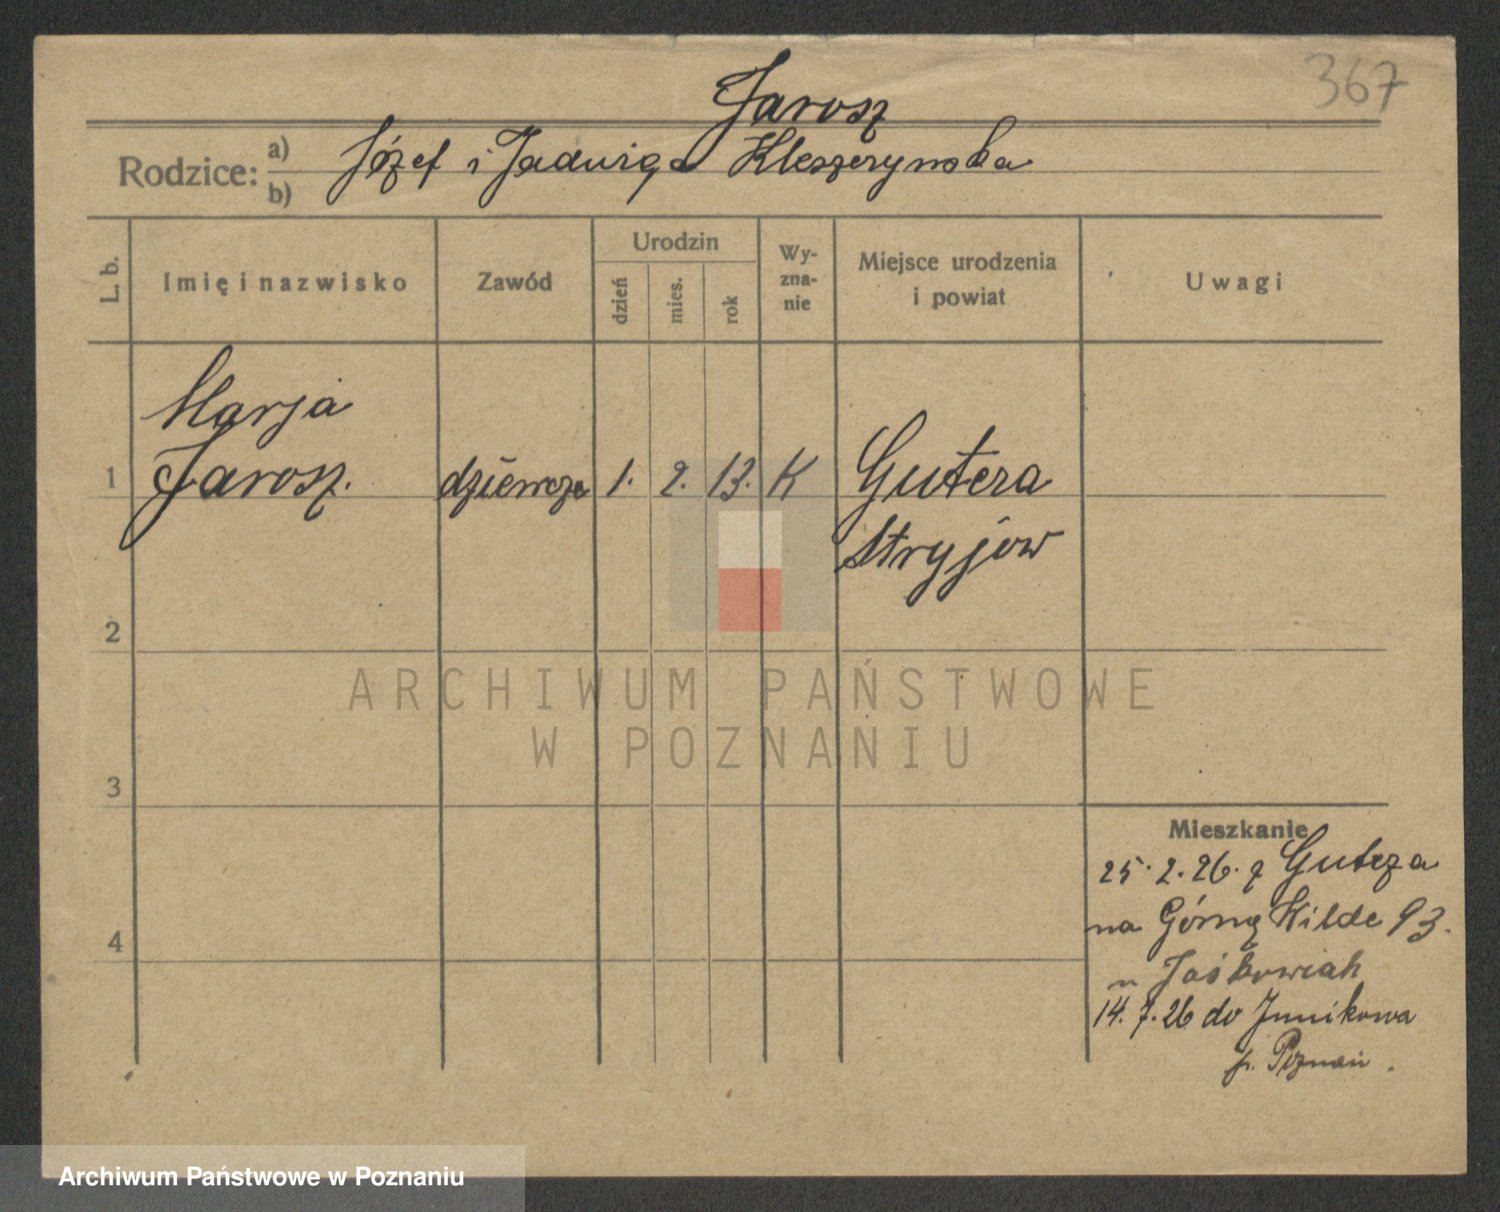 367
Jarosz
Rodzice: a) b) Józef i Jadwiga Kleszczynska
L. b.
Imię i nazwisko
Zawód
Urodzin
dzień
mies.
rok
Wy-
zna-
nie
Miejsce urodzenia
i powiat
Uwagi
Marja
1 Jarosz. dziewczę 1. 2. 13. K Gutera
Stryjów
2
3
4
Mieszkanie
25.2.26. z Guteza
na Górną Wilde 93.
u Jaśkowiak
14.7.26 do Junikowa
p. Poznań.
ARCHIWUM PAŃSTWOWE
W POZNANIU
Archiwum Państwowe w Poznaniu